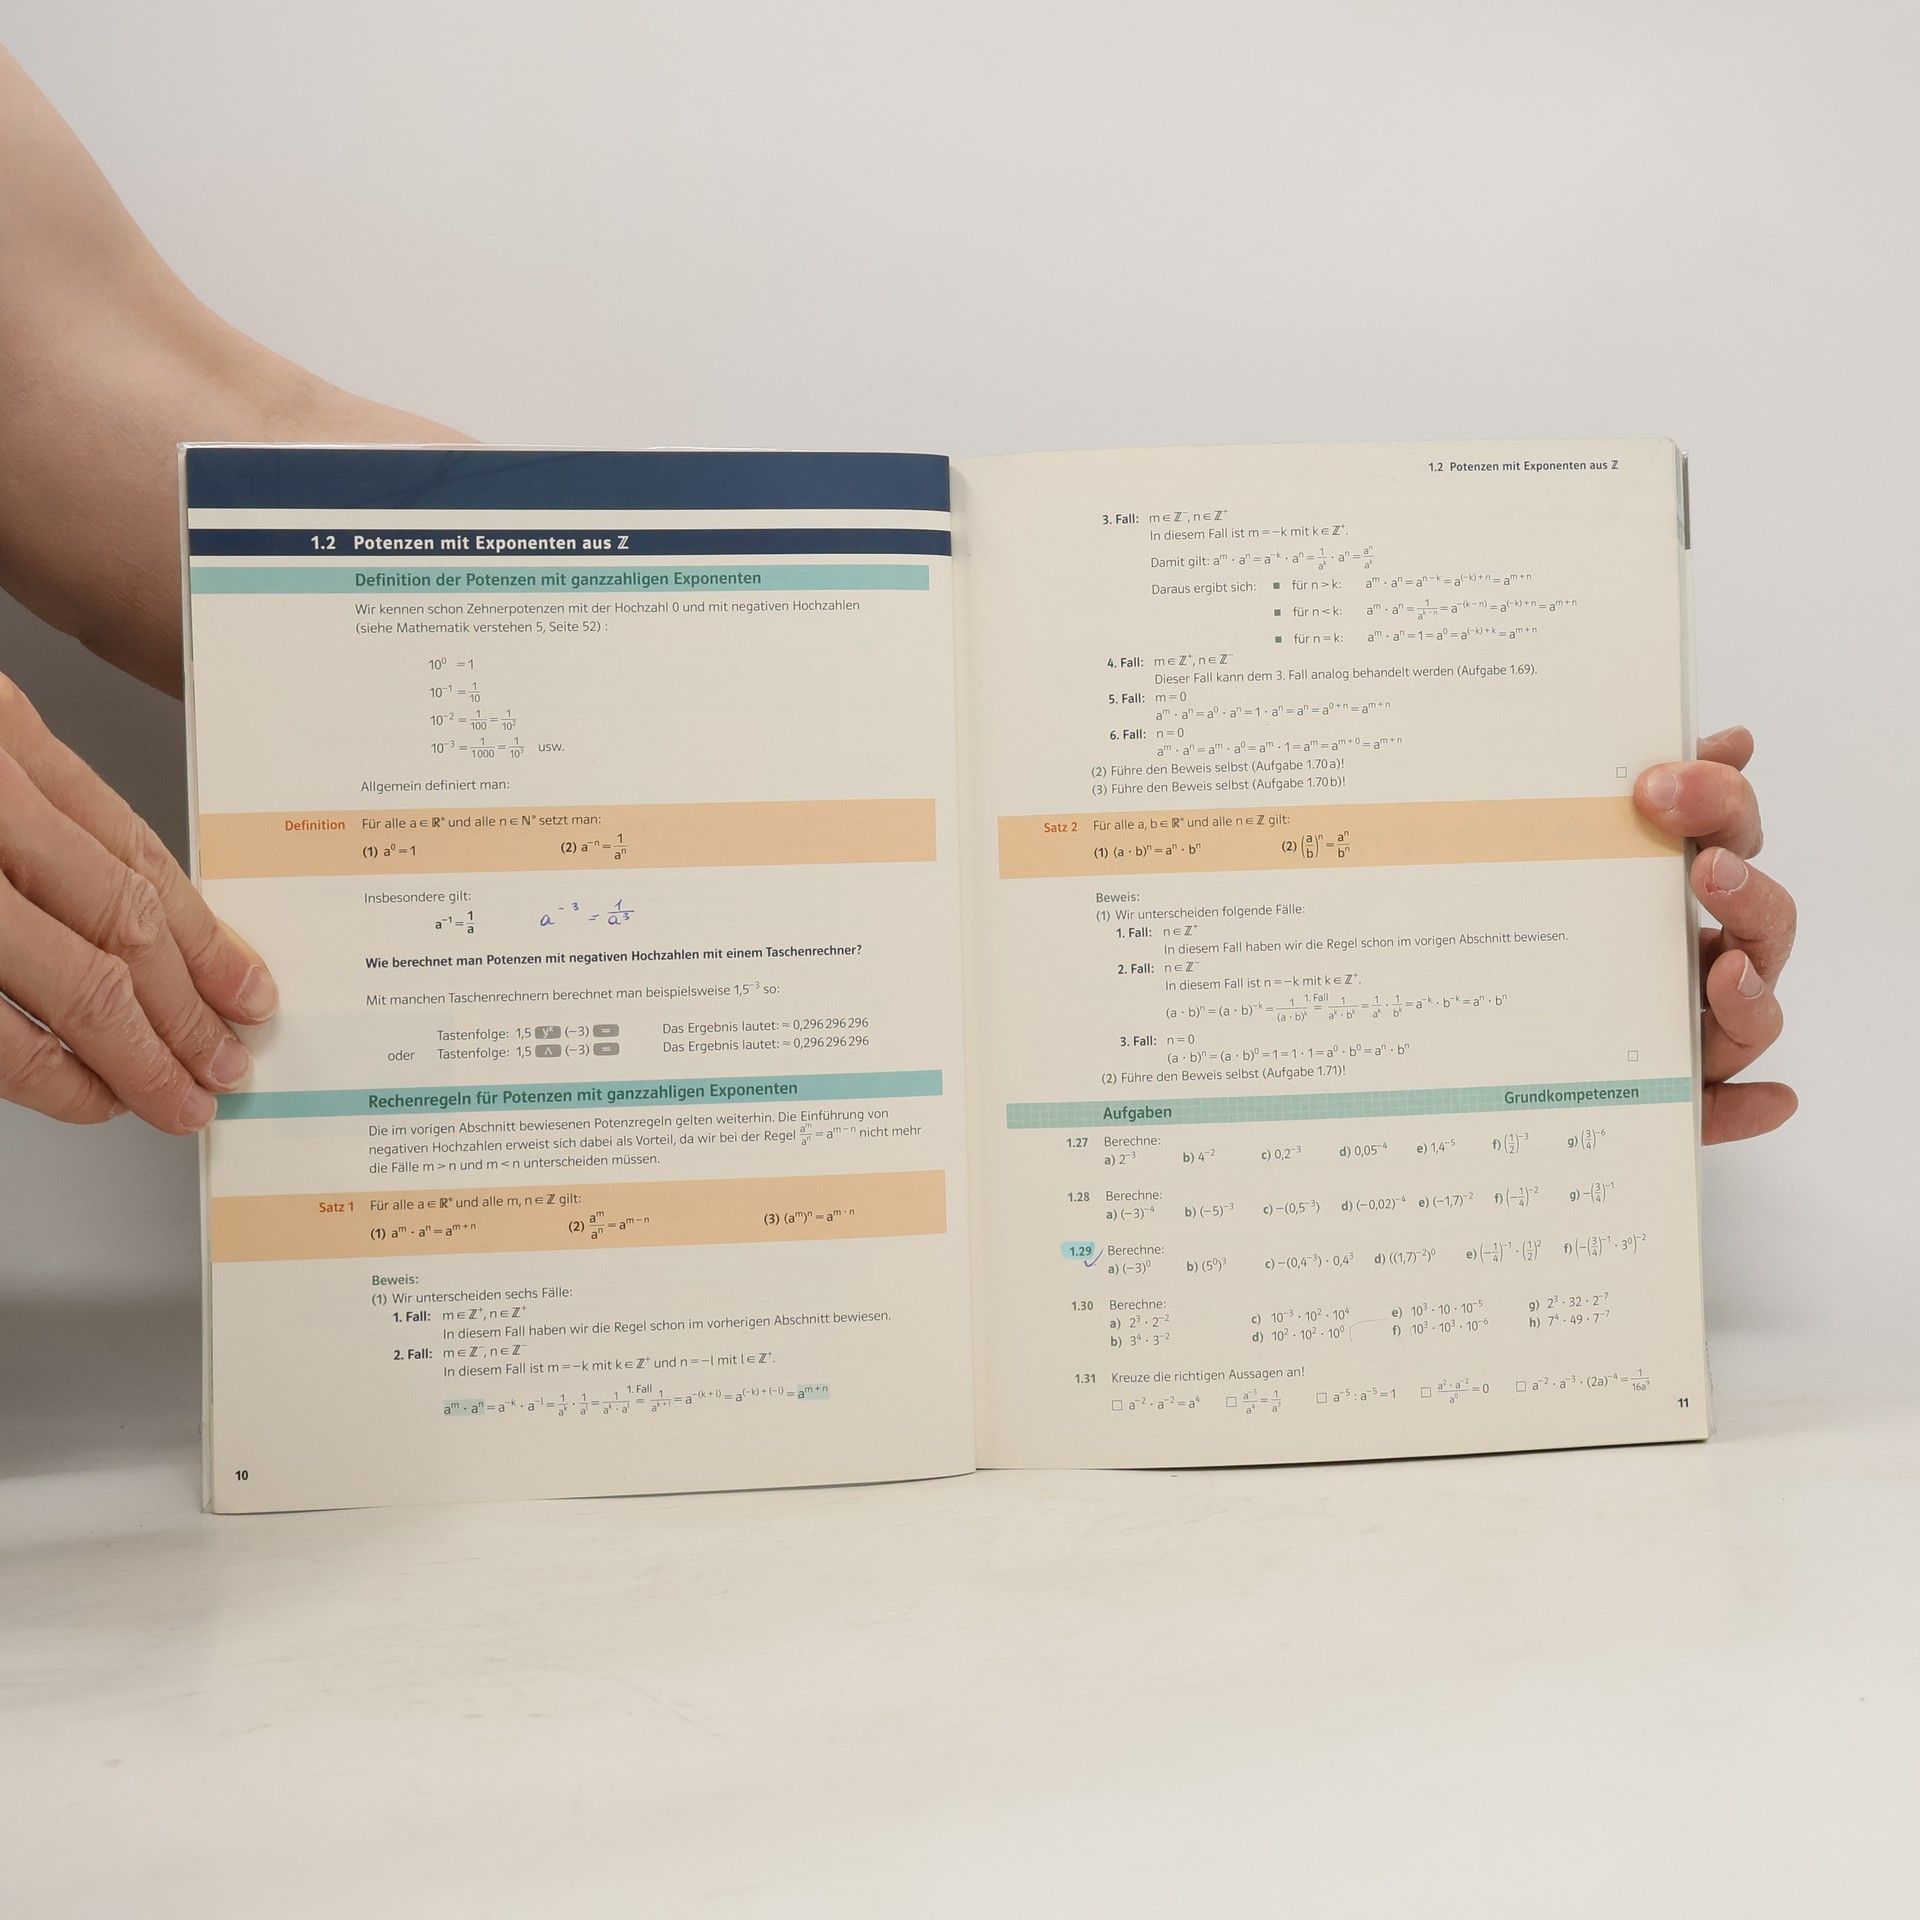 1.2 Potenzen mit Exponenten aus ℤ
Definition der Potenzen mit ganzzahligen Exponenten
Wir kennen schon Zehnerpotenzen mit der Hochzahl 0 und mit negativen Hochzahlen
(siehe Mathematik verstehen 5, Seite 52) :
10⁰ = 1
10⁻¹ = 1/10
10⁻² = 1/100 = 1/10²
10⁻³ = 1/1000 = 1/10³ usw.
Allgemein definiert man:
Definition Für alle a ∈ ℝ* und alle n ∈ ℕ* setzt man:
(1) a⁰ = 1 (2) a⁻ⁿ = 1/aⁿ
Insbesondere gilt:
a⁻¹ = 1/a a⁻³ = 1/a³
Wie berechnet man Potenzen mit negativen Hochzahlen mit einem Taschenrechner?
Mit manchen Taschenrechnern berechnet man beispielsweise 1,5⁻³ so:
Tastenfolge: 1,5 yˣ (−3) = Das Ergebnis lautet: ≈ 0,296296296
oder Tastenfolge: 1,5 ∧ (−3) = Das Ergebnis lautet: ≈ 0,296296296
Rechenregeln für Potenzen mit ganzzahligen Exponenten
Die im vorigen Abschnitt bewiesenen Potenzregeln gelten weiterhin. Die Einführung von
negativen Hochzahlen erweist sich dabei als Vorteil, da wir bei der Regel aᵐ/aⁿ = aᵐ⁻ⁿ nicht mehr
die Fälle m > n und m < n unterscheiden müssen.
Satz 1 Für alle a ∈ ℝ* und alle m, n ∈ ℤ gilt:
(1) aᵐ · aⁿ = aᵐ⁺ⁿ (2) aᵐ/aⁿ = aᵐ⁻ⁿ (3) (aᵐ)ⁿ = aᵐ·ⁿ
Beweis:
(1) Wir unterscheiden sechs Fälle:
1. Fall: m ∈ ℤ⁺, n ∈ ℤ⁺
In diesem Fall haben wir die Regel schon im vorherigen Abschnitt bewiesen.
2. Fall: m ∈ ℤ⁻, n ∈ ℤ⁻
In diesem Fall ist m = −k mit k ∈ ℤ⁺ und n = −l mit l ∈ ℤ⁺.
1. Fall
aᵐ · aⁿ = a⁻ᵏ · a⁻ˡ = 1/aᵏ · 1/aˡ = 1/(aᵏ · aˡ) = 1/aᵏ⁺ˡ = a^(−(k + l)) = a^((−k) + (−l)) = aᵐ⁺ⁿ
10
1.2 Potenzen mit Exponenten aus ℤ
3. Fall: m ∈ ℤ⁻, n ∈ ℤ⁺
In diesem Fall ist m = −k mit k ∈ ℤ⁺.
Damit gilt: aᵐ · aⁿ = a⁻ᵏ · aⁿ = 1/aᵏ · aⁿ = aⁿ/aᵏ
Daraus ergibt sich: ▪ für n > k: aᵐ · aⁿ = aⁿ⁻ᵏ = a^((−k) + n) = aᵐ⁺ⁿ
▪ für n < k: aᵐ · aⁿ = 1/aᵏ⁻ⁿ = a^(−(k − n)) = a^((−k) + n) = aᵐ⁺ⁿ
▪ für n = k: aᵐ · aⁿ = 1 = a⁰ = a^((−k) + k) = aᵐ⁺ⁿ
4. Fall: m ∈ ℤ⁺, n ∈ ℤ⁻
Dieser Fall kann dem 3. Fall analog behandelt werden (Aufgabe 1.69).
5. Fall: m = 0
aᵐ · aⁿ = a⁰ · aⁿ = 1 · aⁿ = aⁿ = a⁰⁺ⁿ = aᵐ⁺ⁿ
6. Fall: n = 0
aᵐ · aⁿ = aᵐ · a⁰ = aᵐ · 1 = aᵐ = aᵐ⁺⁰ = aᵐ⁺ⁿ
(2) Führe den Beweis selbst (Aufgabe 1.70 a)!
(3) Führe den Beweis selbst (Aufgabe 1.70 b)! □
Satz 2 Für alle a, b ∈ ℝ* und alle n ∈ ℤ gilt:
(1) (a · b)ⁿ = aⁿ · bⁿ (2) (a/b)ⁿ = aⁿ/bⁿ
Beweis:
(1) Wir unterscheiden folgende Fälle:
1. Fall: n ∈ ℤ⁺
In diesem Fall haben wir die Regel schon im vorigen Abschnitt bewiesen.
2. Fall: n ∈ ℤ⁻
In diesem Fall ist n = −k mit k ∈ ℤ⁺.
1. Fall
(a · b)ⁿ = (a · b)⁻ᵏ = 1/(a · b)ᵏ = 1/(aᵏ · bᵏ) = 1/aᵏ · 1/bᵏ = a⁻ᵏ · b⁻ᵏ = aⁿ · bⁿ
3. Fall: n = 0
(a · b)ⁿ = (a · b)⁰ = 1 = 1 · 1 = a⁰ · b⁰ = aⁿ · bⁿ
(2) Führe den Beweis selbst (Aufgabe 1.71)! □
Aufgaben Grundkompetenzen
1.27 Berechne:
a) 2⁻³ b) 4⁻² c) 0,2⁻³ d) 0,05⁻⁴ e) 1,4⁻⁵ f) (1/2)⁻³ g) (3/4)⁻⁶
1.28 Berechne:
a) (−3)⁻⁴ b) (−5)⁻³ c) −(0,5⁻³) d) (−0,02)⁻⁴ e) (−1,7)⁻² f) (−1/4)⁻² g) −(3/4)⁻¹
1.29 Berechne:
a) (−3)⁰ b) (5⁰)³ c) −(0,4⁻³) · 0,4³ d) ((1,7)⁻²)⁰ e) (−1/4)⁻¹ · (1/2)² f) (−(3/4)⁻¹ · 3⁰)⁻²
1.30 Berechne:
a) 2³ · 2⁻² c) 10⁻³ · 10² · 10⁴ e) 10³ · 10 · 10⁻⁵ g) 2³ · 32 · 2⁻⁷
b) 3⁴ · 3⁻² d) 10² · 10² · 10⁰ f) 10³ · 10³ · 10⁻⁶ h) 7⁴ · 49 · 7⁻⁷
1.31 Kreuze die richtigen Aussagen an!
□ a⁻² · a⁻² = a⁴ □ a⁻³/a⁴ = 1/a⁷ □ a⁻⁵ : a⁻⁵ = 1 □ (a² · a⁻²)/a⁰ = 0 □ a⁻² · a⁻³ · (2a)⁻⁴ = 1/16a⁹
11